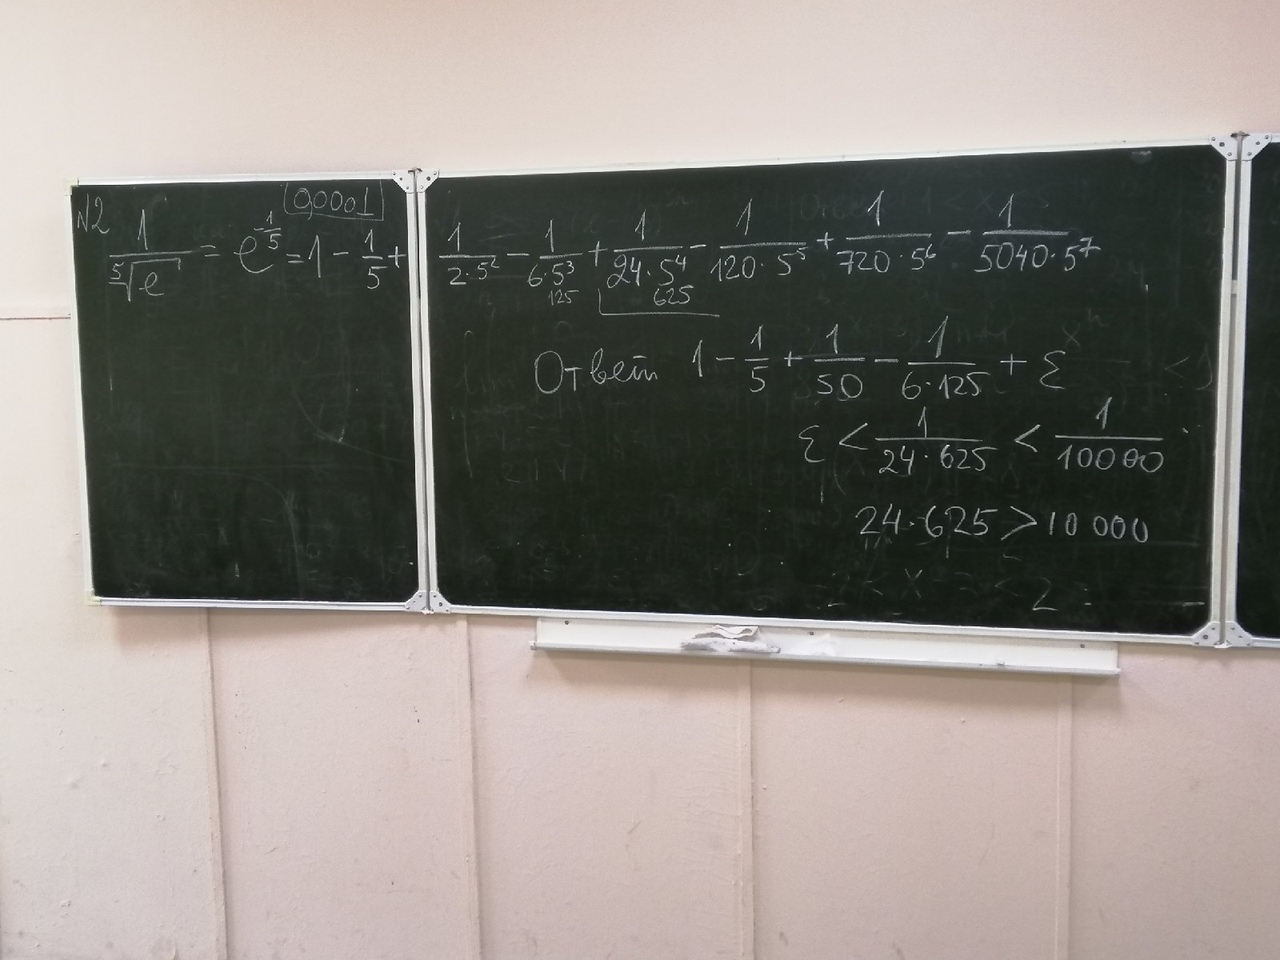 N2
0,0001
1/⁵√e = e^(-1/5) = 1 - 1/5 + 1/(2·5²) - 1/(6·5³) + 1/(24·5⁴) - 1/(120·5⁵) + 1/(720·5⁶) - 1/(5040·5⁷)
125 625
Ответ 1 - 1/5 + 1/50 - 1/(6·125) + ε
ε < 1/(24·625) < 1/10000
24·625 > 10 000